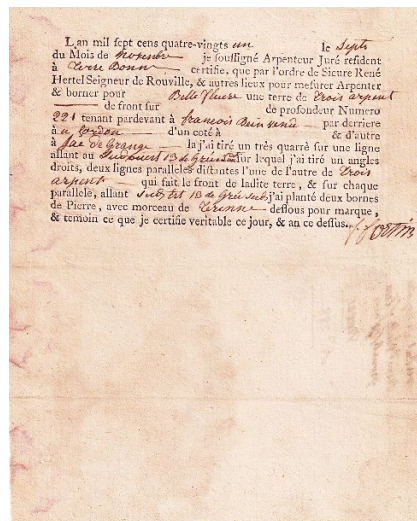 Lan mil sept cens quatre-vingts un le Sept
du Mois de je soussigné Arpenteur Juré résident
à Terre Bonne certifie, que par l'ordre de Sieure René
Hertel Seigneur de Rouville, & autres lieux pour mesurer Arpenter
& borner pour Belle fleure une terre de trois arpent
de front sur de profondeur Numero
221 tenant pardevant à francois par derriere
à u Cordon d'un coté à & d'autre
à Jac de Grange la j'ai tiré un très quarré sur une ligne
allant au sur lequel j'ai tiré un angles
droits, deux lignes paralleles distantes l'une de l'autre de trois
arpent qui fait le front de ladite terre, & sur chaque
parallele, allant j'ai planté deux bornes
de Pierre, avec morceau de dessous pour marque,
& temoin ce que je certifie veritable ce jour, & an ce dessus.